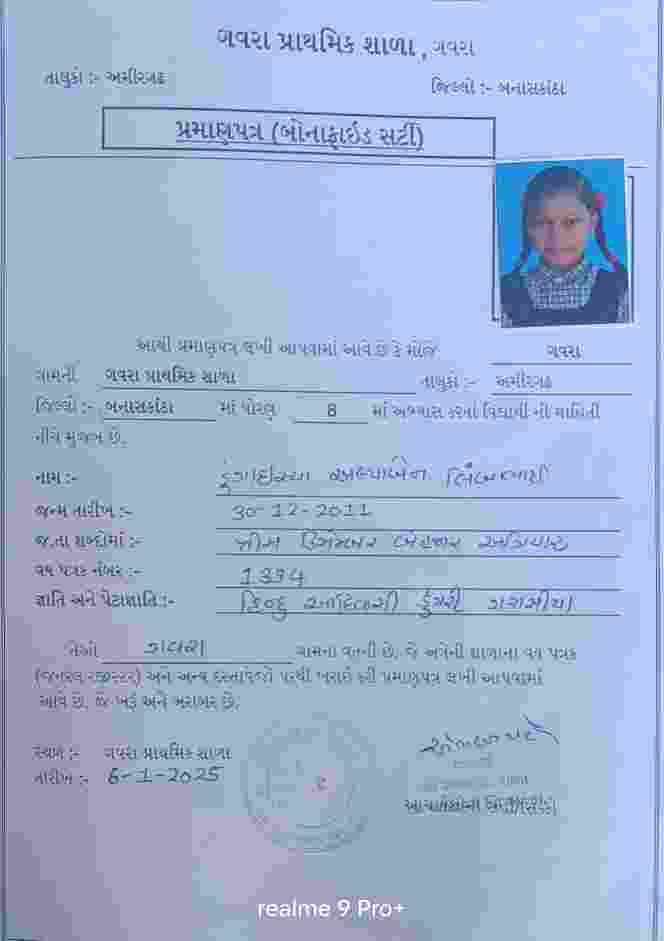 ગવરા પ્રાથમિક શાળા , ગવરા
તાલુકો :- અમીરગઢ
જિલ્લો :- બનાસકાંઠા
પ્રમાણપત્ર (બોનાફાઇડ સર્ટી)
આથી પ્રમાણપત્ર લખી આપવામાં આવે છે કે મોજે ગવરા
ગામની ગવરા પ્રાથમિક શાળા તાલુકો :- અમીરગઢ
જિલ્લો :- બનાસકાંઠા માં ધોરણ 8 માં અભ્યાસ કરતા વિદ્યાર્થી ની માહિતી
નીચે મુજબ છે.
નામ :- અલ્પાબેન
જન્મ તારીખ :- 30-12-2011
જ.તા શબ્દોમાં :- ત્રીસ ડિસેમ્બર બેહજાર અગિયાર
વય પત્રક નંબર :- 1394
જ્ઞાતિ અને પેટાજ્ઞાતિ :- હિન્દુ આદિવાસી ડુંગરી ગરાસીયા
તેઓ ગવરા ગામના વતની છે, જે અત્રેની શાળાના વય પત્રક
(જનરલ રજીસ્ટર) અને અન્ય દસ્તાવેજો પરથી ખરાઈ કરી પ્રમાણપત્ર લખી આપવામાં
આવે છે. જે ખરું અને બરાબર છે.
સ્થળ :- ગવરા પ્રાથમિક શાળા
તારીખ :- 6-1-2025
realme 9 Pro+